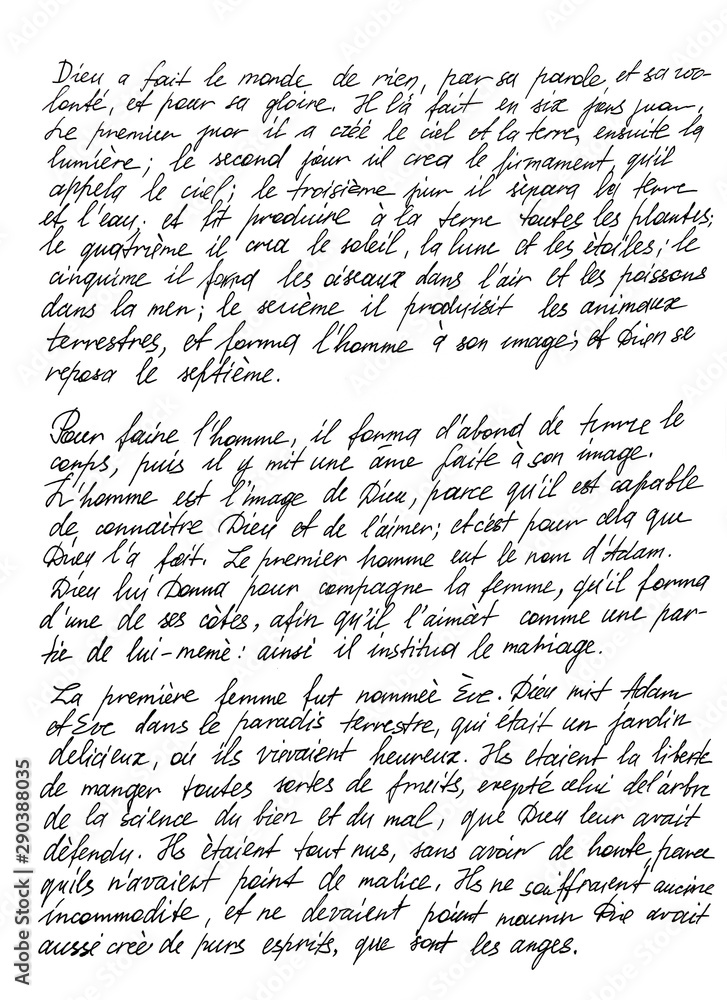 Dieu a fait le monde de rien, par sa parole, et sa vo-
lonté, et pour sa gloire. Il l'a fait en six jous
Le premier juor il a créé le ciel et la terre, ensuite la
lumière; le second jour il crea le firmament, qu'il
appela le ciel; le troisième jour il sèpara la terre
et l'eau, et fit produire à la terre toutes les plantes;
le quatrième il crea le soleil, la lune et les ètoiles; le
cinquime il forma les oiseaux dans l'air et les poissons
dans la mer; le sexième il produisit les animaux
terrestres, et forma l'homme à son image; et Dieu se
reposa le septième.
Pour faire l'homme, il forma d'abord de terre le
corps, puis il y mit une âme faite à son image.
L'homme est l'image de Dieu, parce qu'il est capable
de connaître Dieu et de l'aimer; et c'est pour cela que
Dieu l'a fait. Le premier homme eut le nom d'Adam.
Dieu lui donna pour compagne la femme, qu'il forma
d'une de ses còtes, afin qu'il l'aimàt comme une par-
tie de lui-memè: ainsi il institua le mariage.
La première femme fut nommeè Ève. Dieu mit Adam
et Eve dans le paradis terrestre, qui était un jardin
delicieux, où ils vivaient heureux. Ils etaient la liberte
de manger toutes sortes de fruits, exepté celui de l'arbre
de la science du bien et du mal, que Dieu leur avait
dèfendu. Ils ètaient tout nus, sans avoir de honte, parce
quils n'avaient point de malice. Ils ne souffraient aucune
incommodite, et ne devaient point mourir Die avait
aussi creè de purs esprits, que sont les anges.
Adobe Stock | #290388035
Adobe Stock